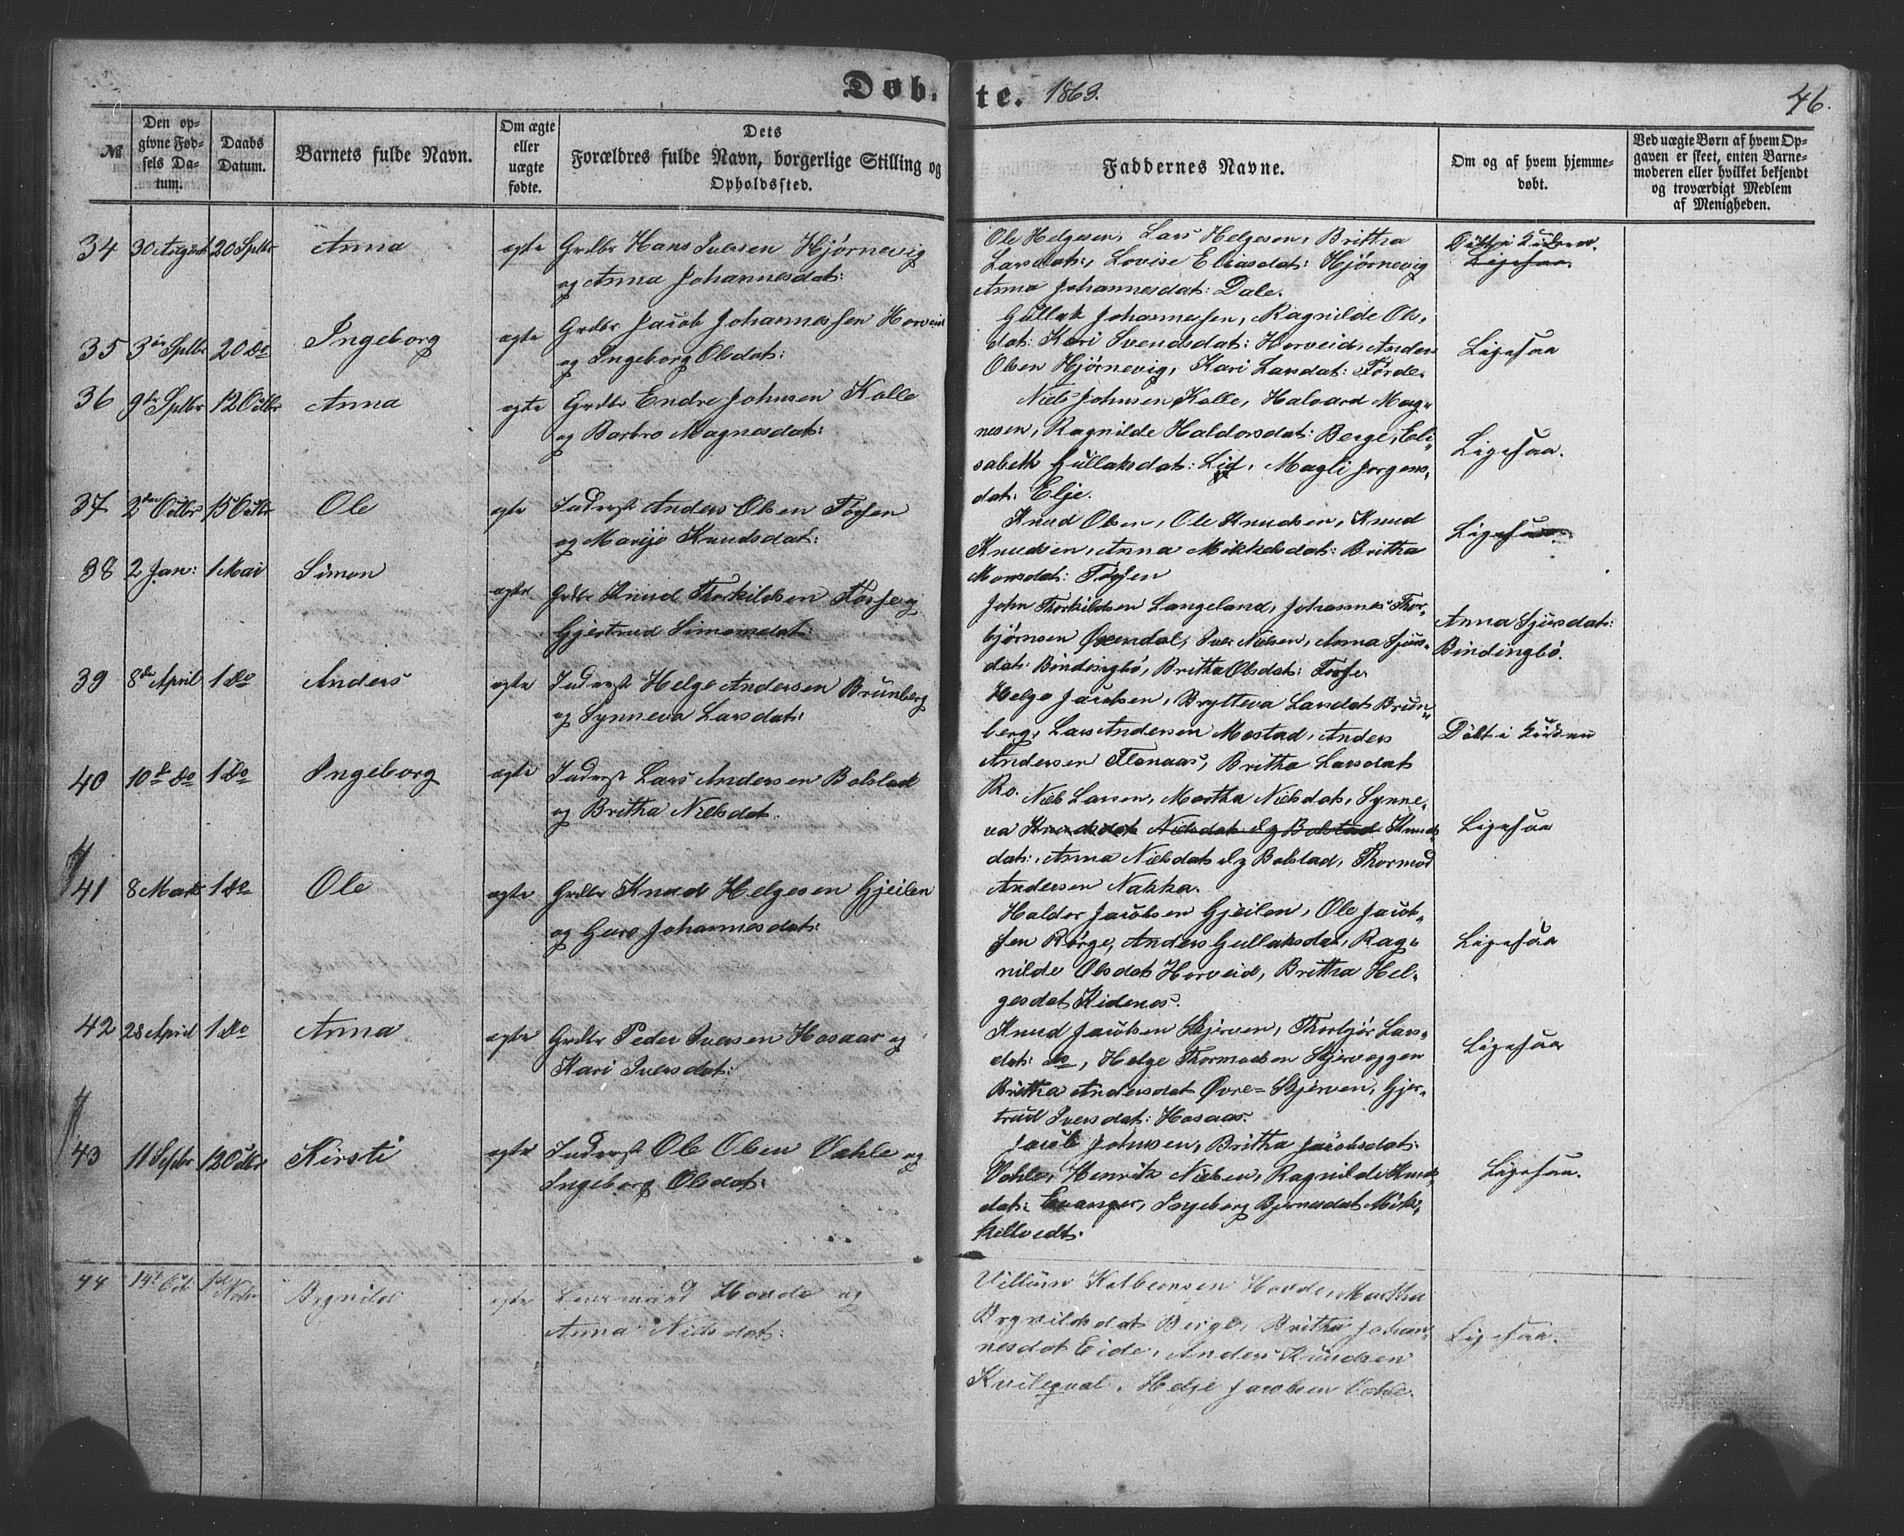 Døb. te. 1863. 46.
№ Den opgivne Fødsels Datum. Daabs Datum. Barnets fulde Navn. Om ægte eller uægte fødte. Dets Forældres fulde Navn, borgerlige Stilling og Opholdssted. Faddernes Navne. Om og af hvem hjemmedøbt. Ved uægte Børn af hvem Opgaven er skeet, enten Barnemoderen eller hvilket bekjendt og troværdigt Medlem af Menigheden.
34 30 August 20 Septbr Anna ægte Grdbr Hans Iversen Hjørnevig
og Anna Johannesdat:
Ole Helgesen, Lars Helgesen, Britha
Larsdat:, Lovise Eliasdat: Hjørnevig
Anna Johannesdat: Dale.
Døbt i Kirken.
Ligesaa.
35 3die Septbr 20 Do Ingeborg ægte Grdbr Jacob Johannessen Horveid
og Ingeborg Olsdat:
Gullak Johannessen, Ragnilde Ols,
dat: Kari Svendsdat: Horveid, Anders
Olsen Hjørnevig, Kari Larsdat: Førde.
Ligesaa
36 9de Septbr 12 Octbr Anna ægte Grdbr Endre Johnsen Kolle
og Barbro Magnesdat:
Niels Johnsen Kolle, Halvard Mag=
nesen, Ragnilde Haldorsdat: Berge, Eli=
sabeth Gullaksdat: Lid, Magli Jørgens=
dat: Elje.
Ligesaa.
37 2den Octbr 15 Octbr Ole ægte Inderst Anders OlsenFøssen
og Marijo Knudsdat:
Knud Olsen, Ole Knudsen, Knud
Knudsen, Anna Mikkelsdat: Britha
Monsdat: Føssen
Ligesaa
38 2 Jan: 1 Mai Simon ægte Grdbr Knud Thorkildsen Fosse og
Gjertrud Simonsdat:
John Thorkildsen Langeland, Johannes Thor=
bjørnsen Øxendal, Iver Nielsen, Anna Sjurs=
dat: Bindingbø, Britha Olsdat: Fosse.
Anna Sjursdat:
Bindingbø.
39 8de April 1 Do Anders ægte Inderst Helge Andersen Brunberg
og Synneva Larsdat:
Helge Jacobsen, Brytteva Larsdat Brun=
berg, Lars Andersen Mestad, Anders
Andersen Flanaas, Britha Larsdat
Ro.
Døbt i Kirken
40 10de Do 1 Do Ingeborg ægte Inderst Lars Andersen Bolstad
og Britha Nielsdat.
Niels Larsen, Martha Nielsdat, Synne=
va Knudsdat Nielsdat Eg Bolstad Knuds
dat:, Anna Nielsdat Eg Bolstad, Thormod
Andersen Nakka.
Ligesaa
41 8 Marts 1 Do Ole ægte Grdbr Knud Helgesen Gjeilen
og Guro Johannesdat:
Haldor Jacobsen Gjeilen, Ole Jacob=
sen Rørge, Anders Gullaksdat, Rag=
nilde Olsdat Horveid, Britha Hel=
gesdat Kidenes.
Ligesaa
42 28 April 1 Do Anna ægte Grdbr Peder Iversen Hosaas og
Kari Iversdat:
Knud Jacobsen Skjerven, Thorbjør Lars=
dat: Do, Helge Thormodsen Skjerveggen
Britha Andersdat Øvre=Skjerven, Gjer=
trud Iversdat: Hosaas.
Ligesaa
43 11 Septbr 12 Octbr Kirsti ægte Inderst Ole Olsen Væhle og
Ingeborg Olsdat:
Jacob Johnsen, Britha Jacobsdat:
Væhle, Henrik Nielsen, Ragnilde Knuds
dat: Evanger, Ingeborg Bjørnesdat Mik=
keltvedt.
Ligesaa.
44 14de Octbr 1ste Novbr Brynild ægte Hovde og
Anna Nielsdat:
Villum Kolbeinsen Hovde, Martha
Brynildsdat Berge, Britha Johan=
nesdat Eide, Anders Knudsen
Kvilequal, Helje Jacobsen Væhle.
Ligesaa.